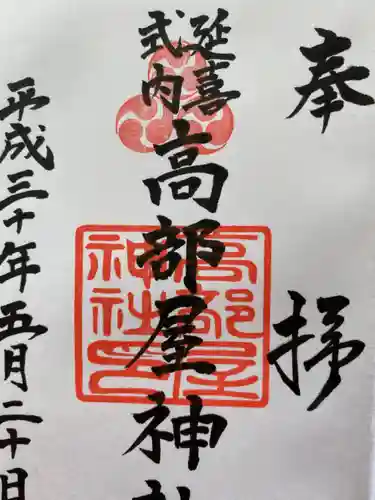 奉拝
延喜
式内
高部屋神社
平成三十年五月二十日
高部屋
神社印